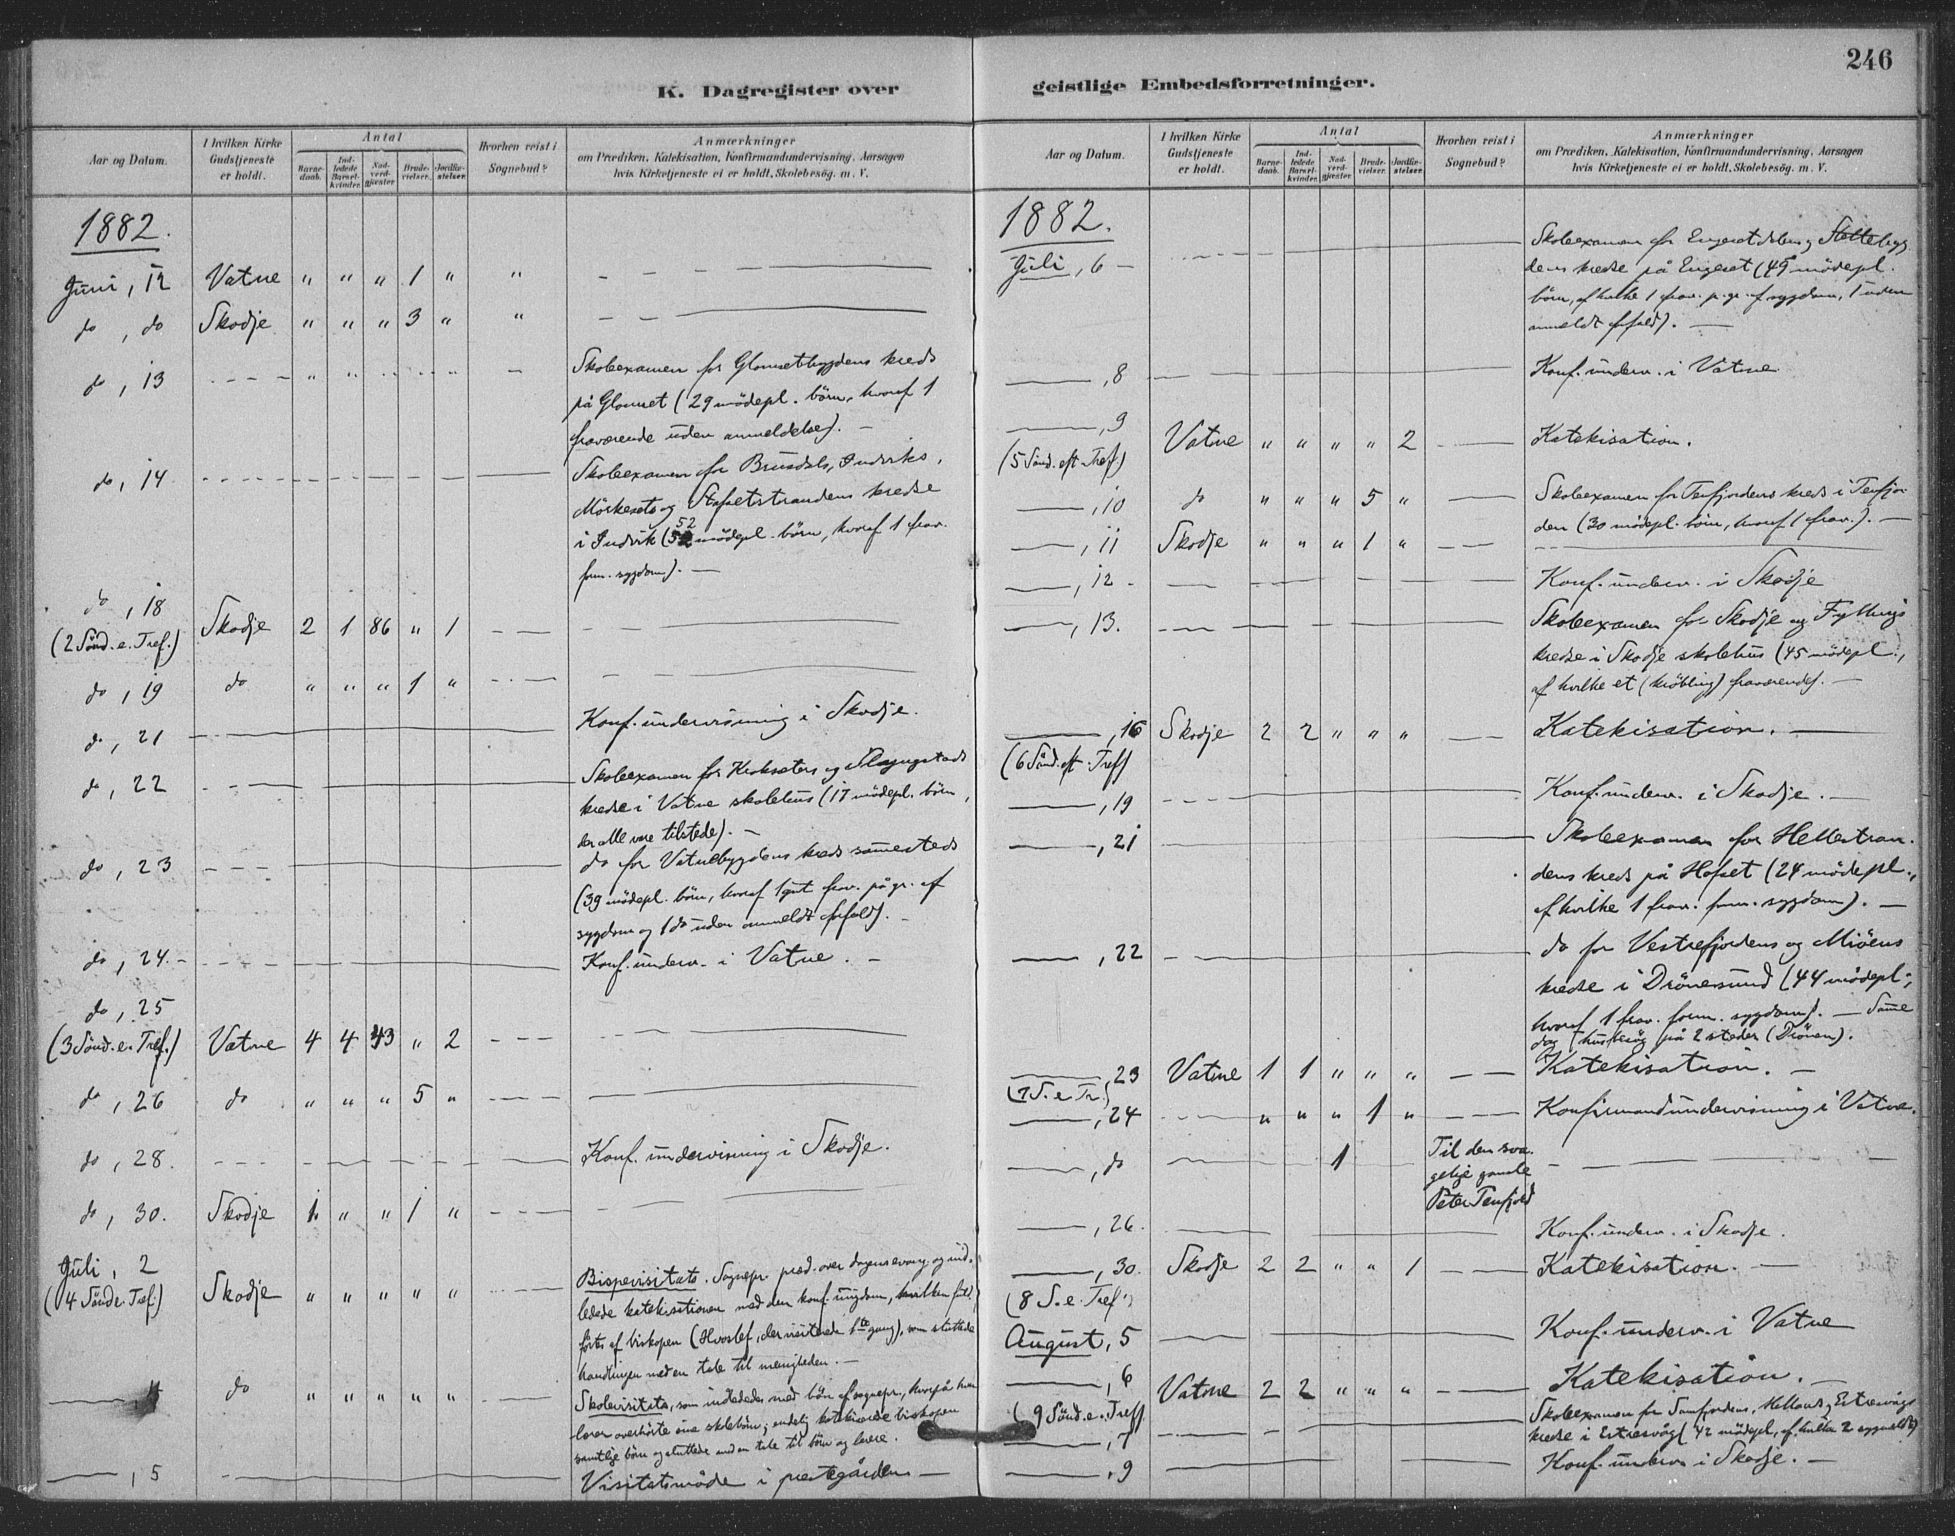 246
K. Dagregister over geistlige Embedsforretninger.
Aar og Datum. I hvilken Kirke Gudstjeneste er holdt. Antal Barnedaab. Indledede Barselkvinder. Nadverdgjæster Brudevielser. Jordfæstelser. Hvorhen reist i Sognebud? Anmærkninger om Prædiken, Katekisation, Konfirmandundervisning, Aarsagen hvis Kirketjeneste ei er holdt, Skolebesøg. m. V.
1882.
Juni, 12 Vatne " " " 1 " "
do, do Skodje " " " 3 " "
do, 13 Skoleexamen for Glomsetbygdens kreds
på Glomset (29 mödepl. börn, hvoraf 1
fraværende uden anmeldelse). —
do, 14. Skoleexamen for Brusdals, Indviks,
Mörkesets og Stafsetstrandens kredse
i Indvik (52 mödepl. börn, hvoraf 1 frav.
form. sygdom). —
do, 18
(2 Sönd. e. Tref.) Skodje 2 1 86 " 1
do, 19 do " " " 1 "
do, 21 Konf. undervisning i Skodje.
do, 22 Skoleexamen for Kroksæters og
kredse i Vatne skolehus (17 mödepl. börn,
der alle vare tilstede). —
do, 23 do for Vatnebygdens kreds sammesteds
(39 mödepl. börn, hvoraf 1 frav. på gr. af
sygdom og 1 do uden anmeldt forfald). —
do, 24. Konf. underv. i Vatne. —
do, 25
(3 Sönd. e. Tref.) Vatne 4 4 43 " 2
do, 26 do " " " 5 "
do, 28. Konf. undervisning i Skodje.
do, 30. Skodje 1 " " 1 "
Juli, 2
(4 Sönd e. Tref.) Skodje " " " " " Bispevisitats. Sognepr. præd. over dagens evang. og ind-
ledede katekisationen med den konf. ungdom, hvilken fuld-
förtes af biskopen (Hvoslef, der visiterede 1ste gang), som sluttede
handlingen med en tale til menigheden. —
4 do " " " " " Skolevisitats, som indlededes med bön af sognepr., hvorpå hver
lærer overhörte sine skolebörn; endelig katekiserede biskopen
samtlige börn og sluttede med en tale til börn og lærere.
, 5 Visitatsmöde i præstegården —
Aar og Datum. I hvilken Kirke Gudstjeneste er holdt. Antal Barnedaab. Indledede Barselkvinder. Nadverdgjæster Brudevielser. Jordfæstelser. Hvorhen reist i Sognebud? Anmærkninger om Prædiken, Katekisation, Konfirmandundervisning, Aarsagen hvis Kirketjeneste ei er holdt, Skolebesög. m. V.
1882.
Juli, 6 Skoleexamen for Engesetdalens og
dens kredse på Engeset (45 mödepl.
börn, af hvilke 1 frav. p. gr. af sygdom, 1 uden
anmeldt forfald). —
, 8 Konf. underv. i Vatne
, 9
(5 Sönd. eft. Tref.) Vatne " " " " 2 Katekisation.
, 10 do " " " 5 " Skoleexamen for Tenfjordens kreds i Tenfjor-
den (30 mödepl. börn, hvoraf 1 frav.). —
, 11 Skodje " " " 1 "
, 12 Konf. underv. i Skodje
, 13. Skoleexamen for Skodje og Fyllings
kredse i Skodje skolehus (45 mödepl.,
af hvilke et (kröbling) fraværende). —
, 16 Skodje 2 2 " " " Katekisation. —
(6 Sönd. eft. Tref)
, 19 Konf. underv. i Skodje. —
, 21 Skoleexamen for Hellestran-
dens kreds på Hofset (24 mödepl.,
af hvilke 1 frav. form. sygdom). —
, 22 do for Vestrefjordens og Miöens
kredse i Drönesund (44 mödepl.,
hvoraf 1 frav. form. sygdom). — Samme
dag husbesög på 2 steder (Drönen).
, 23 Vatne 1 1 " " " Katekisation. —
(7 S. e. Tr.)
, 24 " " " 1 " Konfirmandundervisning i Vatne.
, do 1 Til den sva-
gelige gamle
Peter Tenfjord
, 26. Konf. underv. i Skodje.
, 30. Skodje 2 2 " " 1 Katekisation. —
(8 S. e. Tref.)
August, 5 Konf. underv. i Vatne
, 6 Vatne 2 2 " " " Katekisation. —
(9 Sönd. e. Tref)
, 7 Skoleexamen for
kredse i Estresvåg (42 mödepl., af hvilke 2 sygmeldte)
, 9 Konf. underv. i Skodje. —